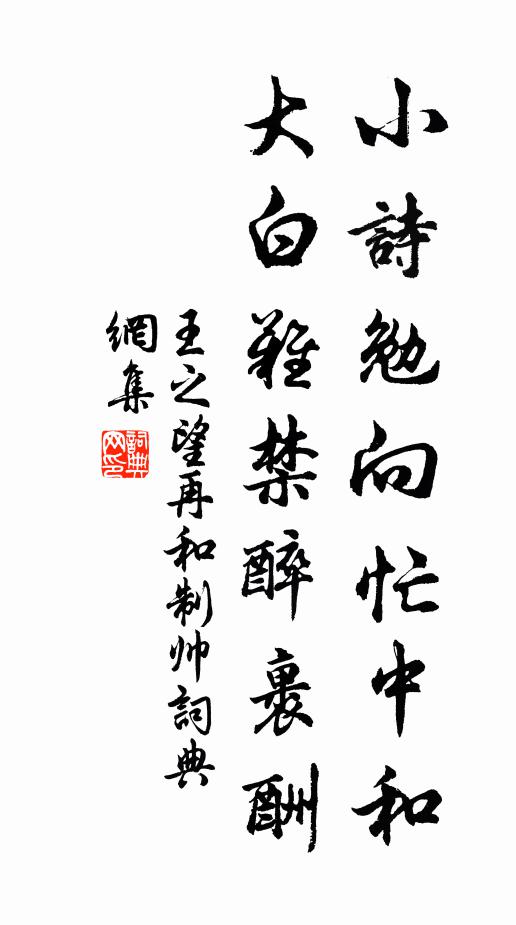 小詩勉向忙中和
大白難禁醉裹酬
王之望再和制帅詞典
網集
詞典網印